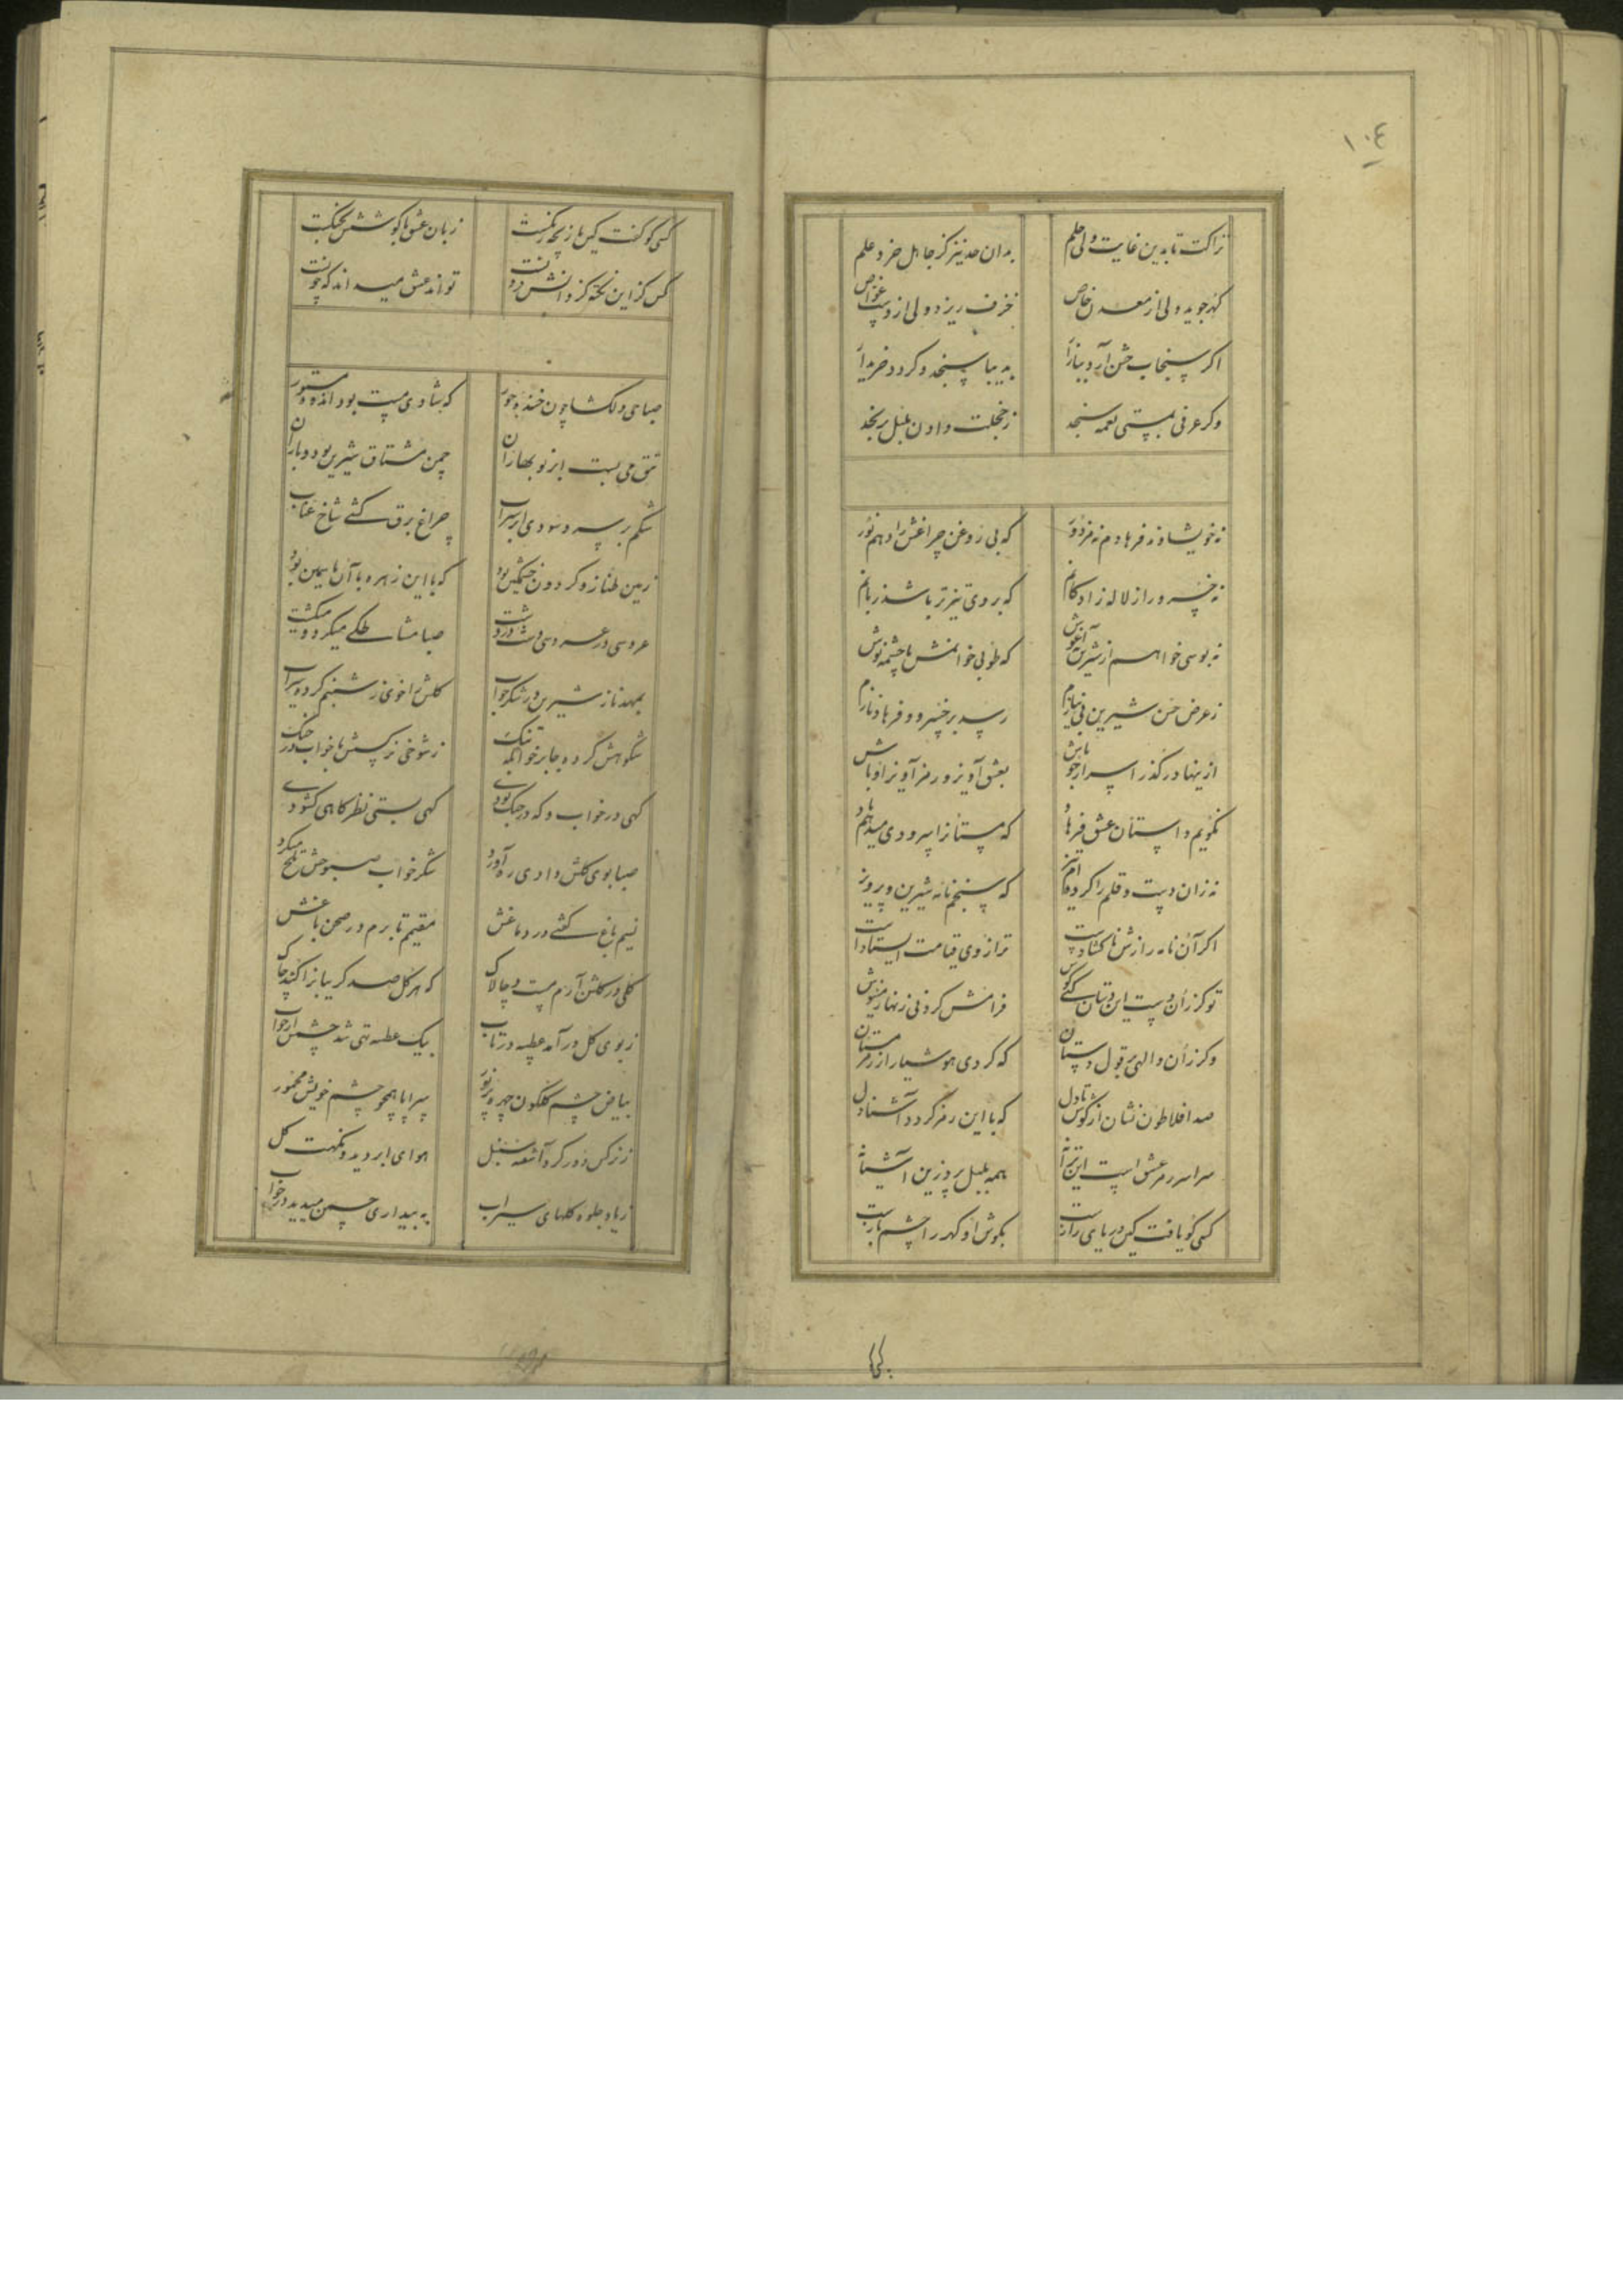 ١٠٤
نزاکت تا بدین غایت ولی حلم
بدان حد نیز کز جاهل خرد علم
گهر جوید ولی از معدن خاص
خزف ریزد ولی از دست غواص
اگر سنجاب حسن آرد ببازار
بدیبا سنجد و گردد خریدار
وگر عرفی بمستی نغمه سنجد
ز خجلت دادن بلبل برنجد
نه خویشاوند فرهادم نه مزدور
که بی روغن چراغش را دهم نور
نه خسرو راز لاله زاد کانم
که بر وی تیزتر باشد زبانم
نه بوسی خواهم از شیرین نه آغوش
که طوبی خوانمش با چشمه نوش
ز عرض حسن شیرین بی نیازم
رسد بر خسرو و فرهاد نازم
ازینها در گذر اسرار جو باش
بعشق آویز و رمز آویز او باش
نگویم داستان عشق فرهاد
که مستانرا سرودی میدهم یاد
نه زان دست و قلم را کرده‌ام تیز
که سنجم نامه شیرین و پرویز
اگر آن نامه رازش ناگشادست
ترازوی قیامت ایستادست
تو کز آن دست این دستان کنی گوش
فرامش کردنی زنهار منیوش
وگر زان والهی بر قول دستان
که کردی هوشیار از رمز مستان
صد افلاطون نشان از گوش تا دل
که با این رمز گردد آشنا دل
سراسر رمز عشق است این ترانه
همه بلبل پرد زین آشیانه
کسی کو یافت کین دریای رازست
بگوش او گهر را چشم بازست
کسی کو گفت کین بازیچه رنگست
زبان عشق با گوشش بجنگست
کس کز این نکته کز دانش درونست
تواند عشق میداند که چونست
صباحی دلگشا چون خنده حور
که شادی مست بود اندوه مستور
تتق می بست ابر نو بهاران
چمن مشتاق شیرین بود و باران
شکم بر سبزه سودی ابر سیراب
چراغ برق کشتی شاخ عناب
زمین طناز و گردون خشمگین بود
که با این زهره با آن یاسمین بود
عروسی در عروسی دشت در دشت
صبا مشاطگی میکرد و میگشت
بمهد ناز شیرین در شکر خواب
گلش را خوی ز شبنم کرده سیراب
شکوهش کرده جا بر خوابگه تنگ
ز شوخی نرگسش با خواب در جنگ
گهی در خواب و گه در جنگ بودی
گهی بستی نظر گاهی گشودی
صبا بوی گلش دادی ره آورد
شکر خواب صبوحش تلخ میکرد
نسیم باغ گشتی در دماغش
مقیم تا برم در صحن باغش
گلی در گلشن آرم مست و چالاک
که هر گل صد گریبانرا کند چاک
ز بوی گل در آمد عطسه در تاب
بیک عطسه تهی شد چشمش از خواب
بیاض چشم گلگون چهره پر نور
سراپا همچو چشم خویش مخمور
ز نرگس دور کرد آشفته سنبل
هوای ابر دید و نکهت گل
ز یاد جلوه گلهای سیراب
به بیداری چمن میدید در خواب